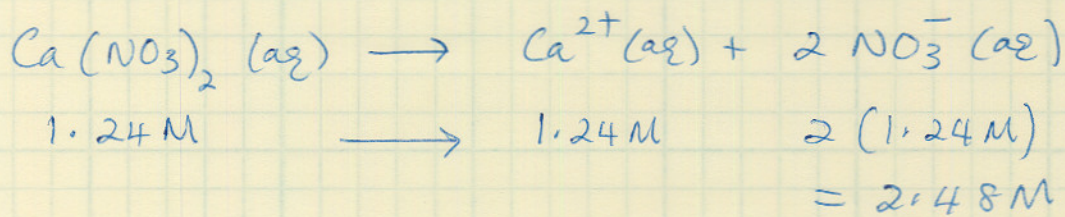 Ca(NO₃)₂ (aq) → Ca²⁺(aq) + 2 NO₃⁻ (aq)
1.24 M → 1.24 M 2 (1.24 M)
= 2.48 M